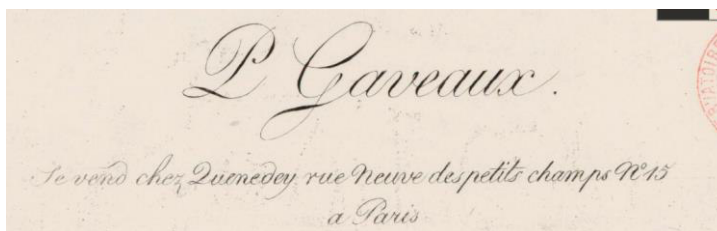 P Gaveaux.
Se vend chez Quenedey rue Neuve des petits champs N° 15
a Paris